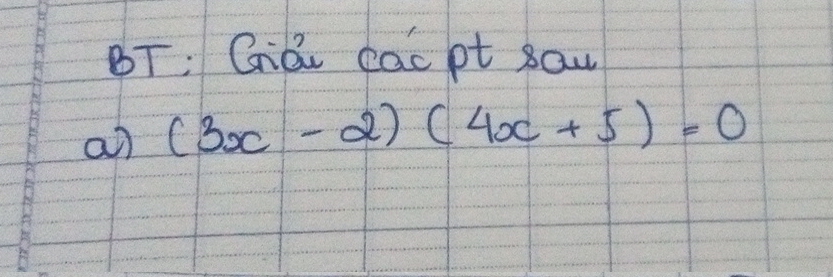 BT: Giải các pt sau
a) (3x - 2) (4x + 5) = 0